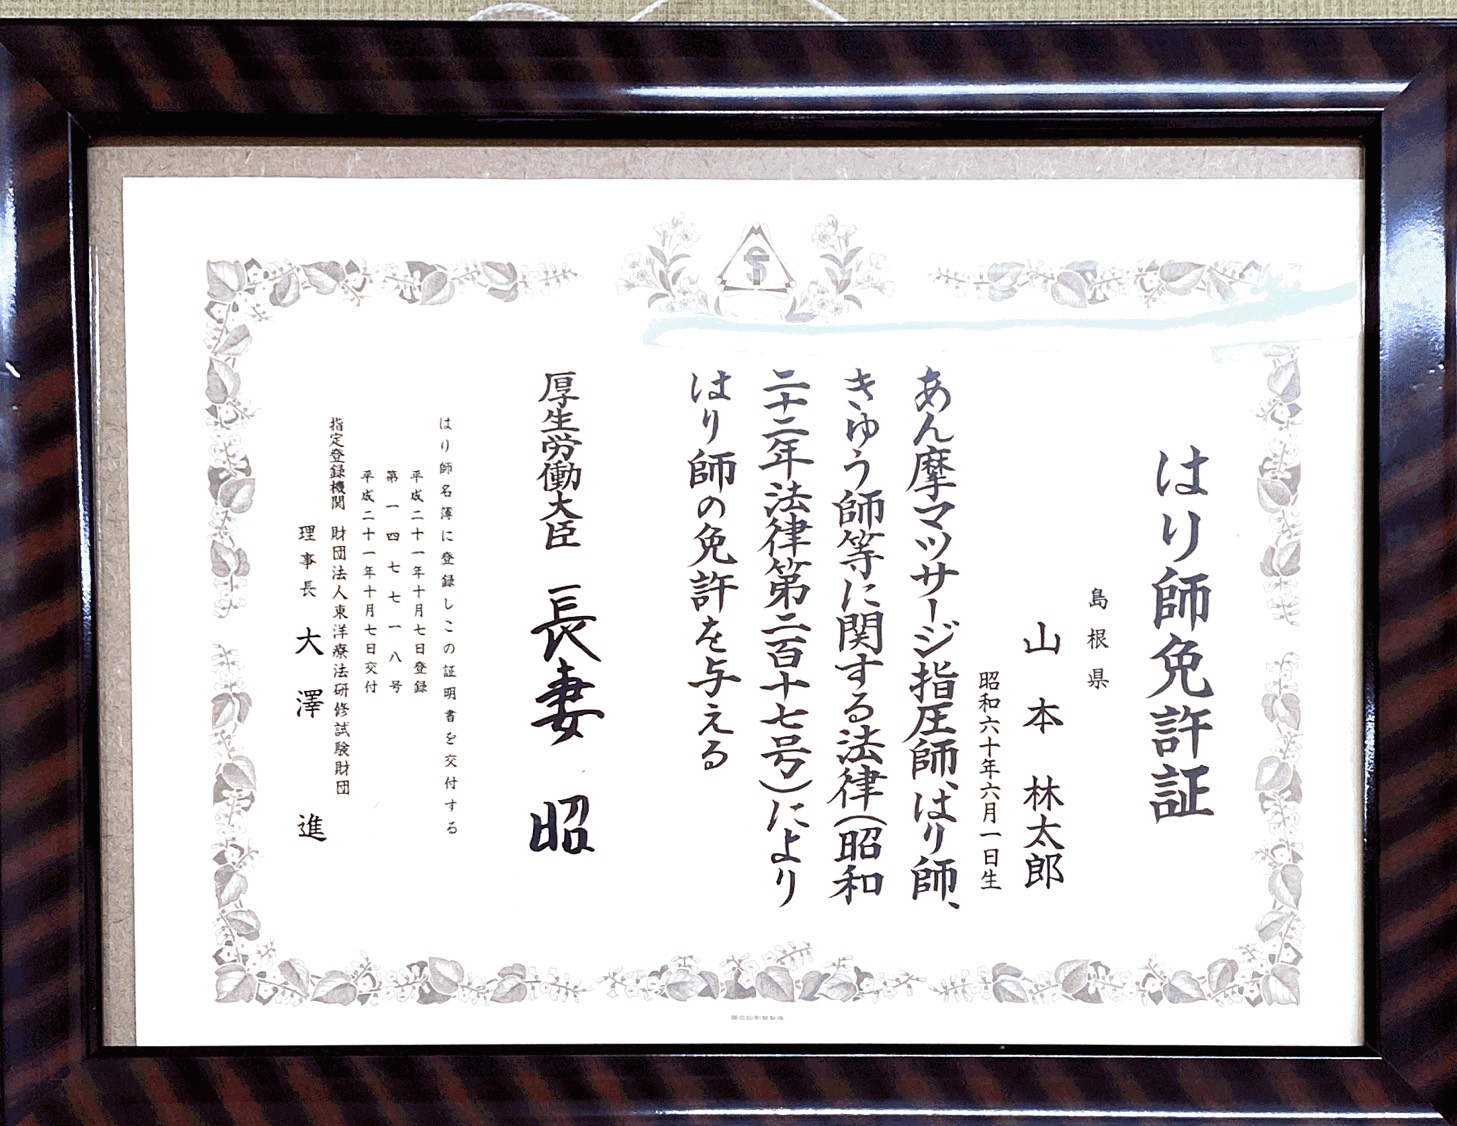 はり師免許証
島根県
山本林太郎
昭和六十年六月一日生
あん摩マツサージ指圧師、はり師、
きゆう師等に関する法律(昭和
二十二年法律第二百十七号)により
はり師の免許を与える
厚生労働大臣 長妻昭
はり師名簿に登録しこの証明書を交付する
平成二十一年十月七日登録
第一四七七一八号
平成二十一年十月七日交付
指定登録機関 財団法人東洋療法研修試験財団
理事長 大澤進